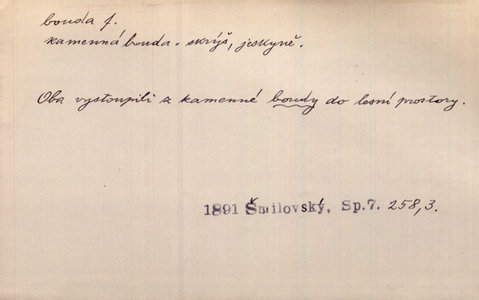 bouda f.
kamenná bouda. skrýš, jeskyně.
Oba vystoupili z kamenné boudy do lesní prostory.
1891 Šmilovský, Sp.7. 258,3.